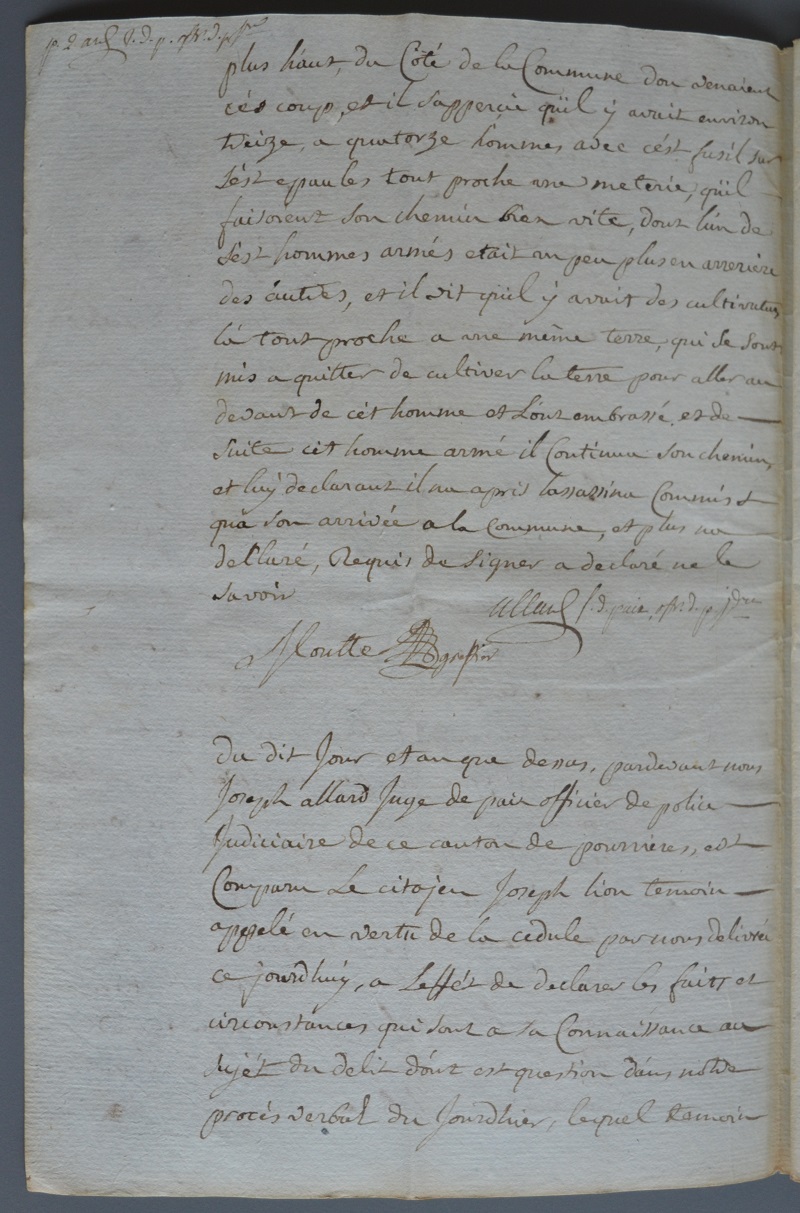 plus háut, du Côté de la Commune dou venaient
cés coup, et il sapperçu qúil ÿ avait environ
treize, a quatorze hommes avec cést fusíl sur
sést epaules tout proche une meterie, qúil
faisoient son chemin bien vite, dont lún de
sést hommes armés etait un peu plus en arreriere
des áutres, et il vit qúil ÿ avait des cultivateurs
lá tout proche a une même terre, qui se sont
mis a quitter de cultiver la terre pour aller au
devant de cét homme et Lont embrassé, et de
suite cét homme armé il Continua son chemin,
et luÿ declarant il na apris lassassina Commis
qúa son arrivée a la Commune, et plus na
delluré, Requis de signer a declaré ne le
savoir
allard j. d. paix, offr. d. p. jdre
Floutte greffier
Du dit Jour et an que dessus, pardevant nous
Joseph allard Juge de paix officier de police
Judiciaire de ce canton de pourrieres, est
Comparu Le citoÿen Joseph lion temoin
appelé en vertu de la cedule par nous delivrée
ce jourdhuÿ, a Leffét de declarer les faits et
circonstances qui sont a sa Connaissance au
sujét du delit dónt est question dáns notre
procés verbal du Jourdhier, lequel temoin